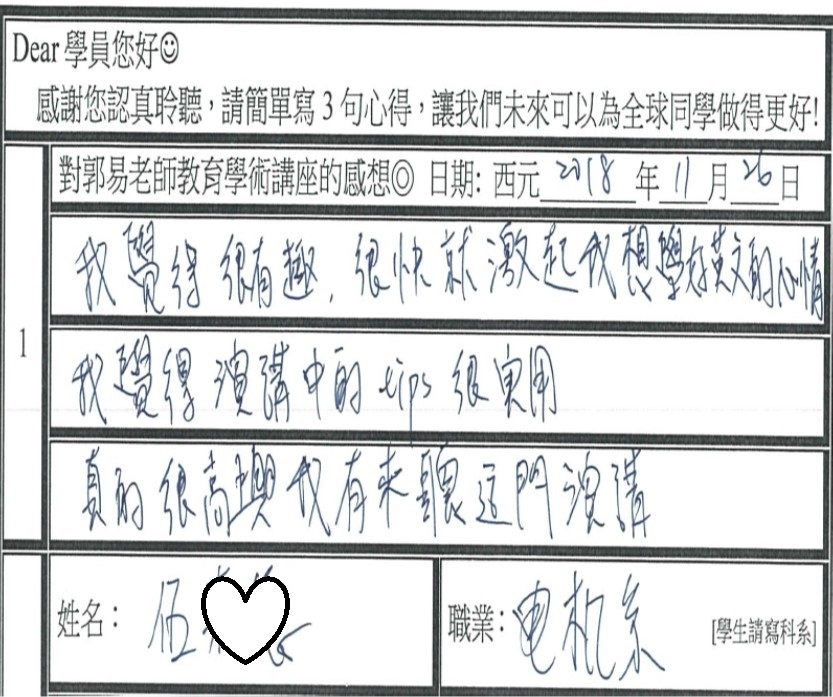 Dear 學員您好☺
感謝您認真聆聽，請簡單寫3句心得，讓我們未來可以為全球同學做得更好!
1
對郭易老師教育學術講座的感想◎ 日期: 西元 2018 年 11 月 26 日
我覺得很有趣，很快就激起我想學好英文的心情
我覺得演講中的tips很実用
真的很高興我有来聽這門演講
姓名： 伍
職業： 电机系 [學生請寫科系]